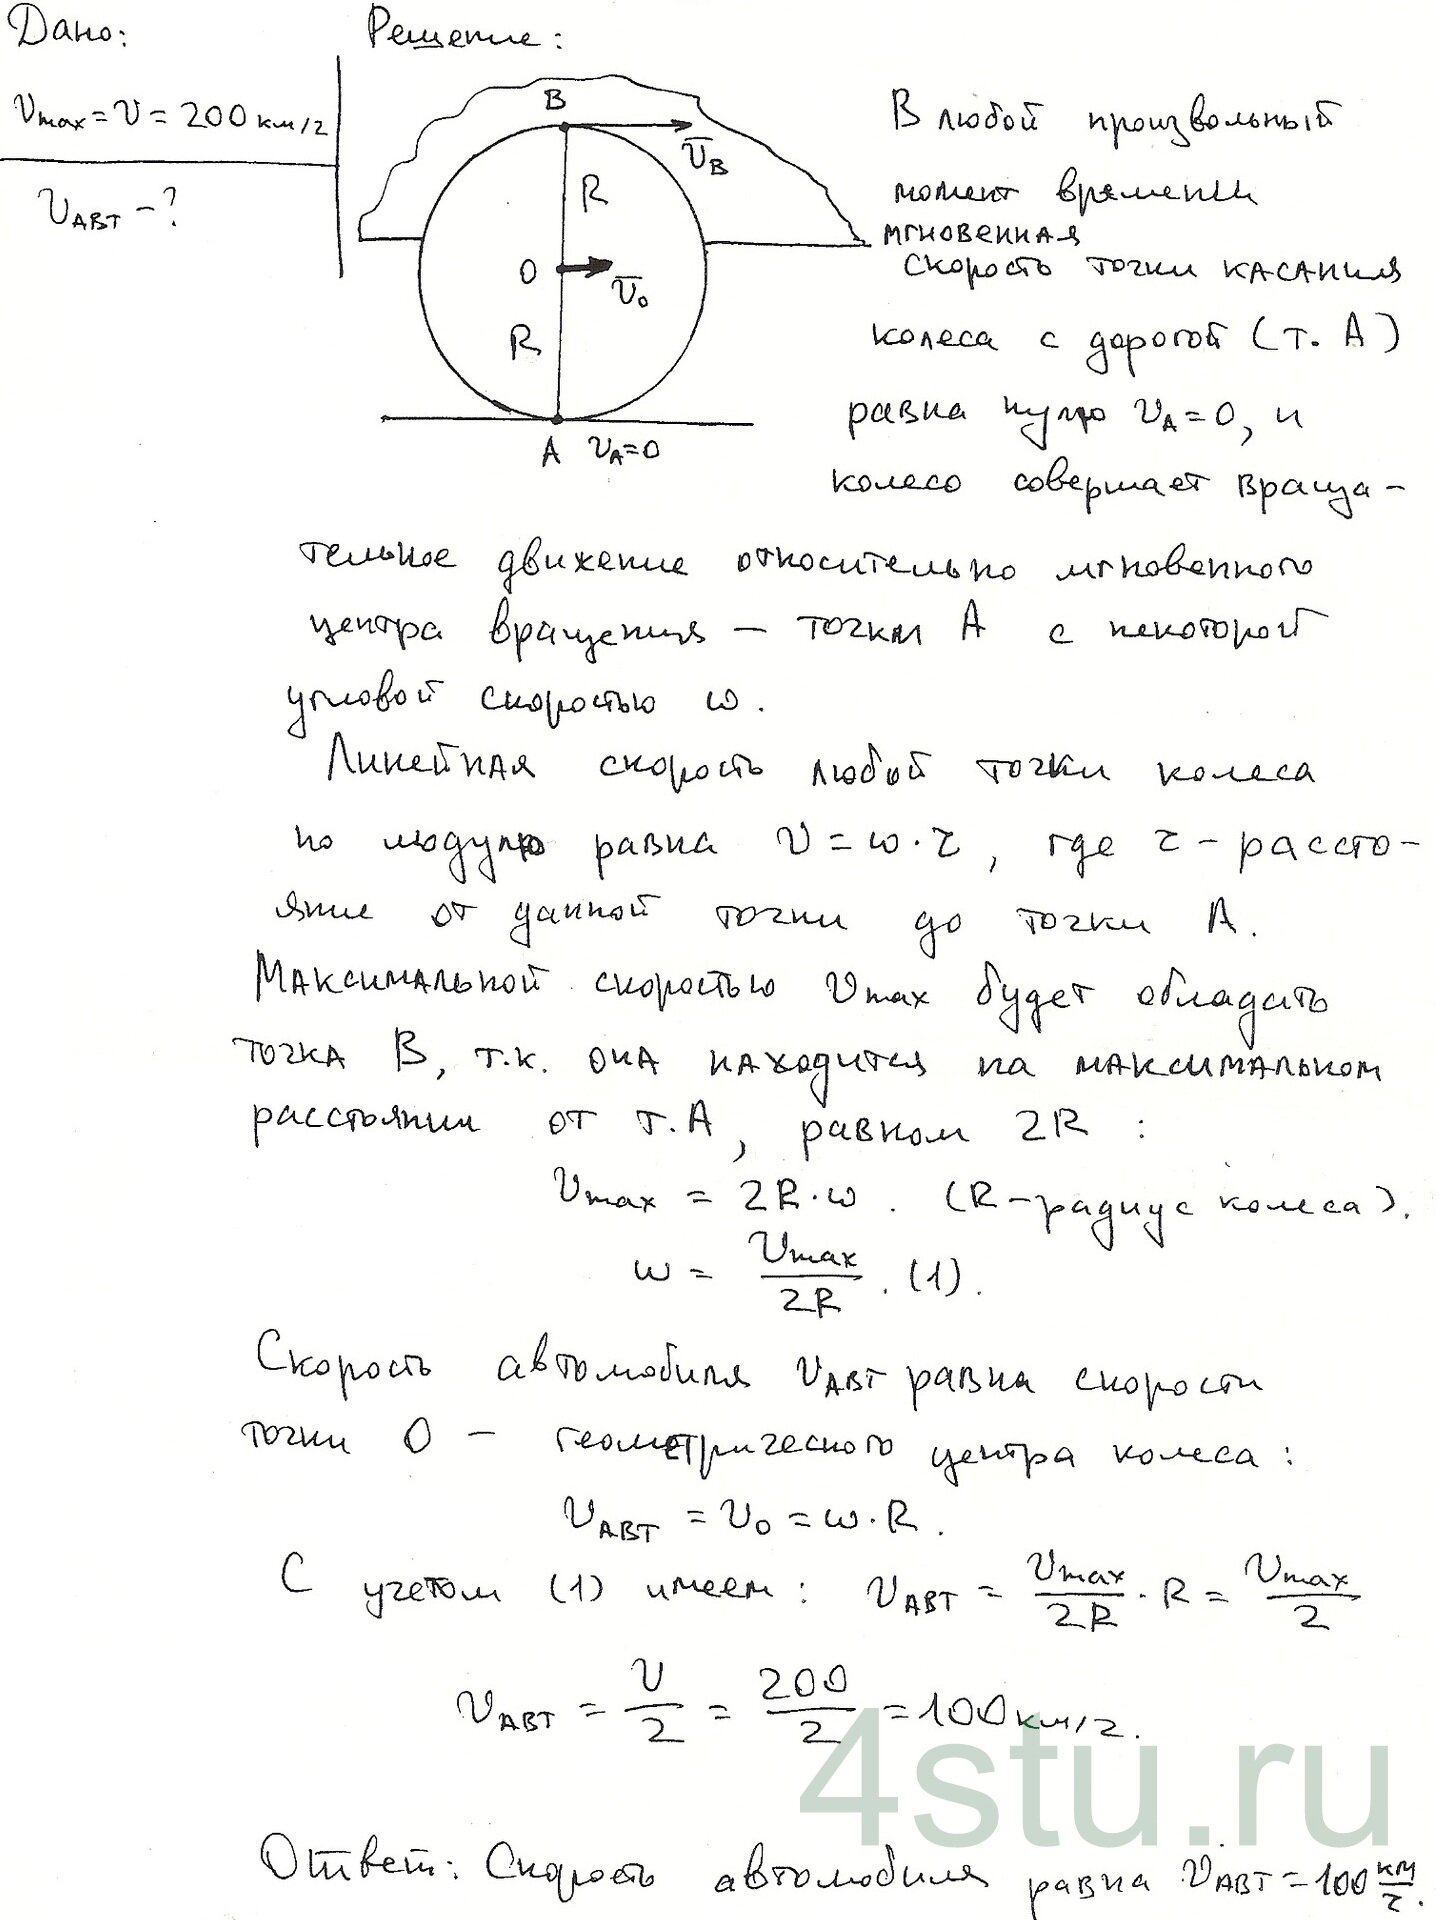 Дано:
Решение:
Vmax = V = 200 км/ч
Vавт - ?
B
V̄B
R
O
V̄o
R
A VA=0
В любой произвольный
момент времени
мгновенная
скорость точки касания
колеса с дорогой (т. А)
равна нулю VA=0, и
колесо совершает враща-
тельное движение относительно мгновенного
центра вращения – точки А с некоторой
угловой скоростью ω.
Линейная скорость любой точки колеса
по модулю равна V = ω·r, где r - рассто-
яние от данной точки до точки А.
Максимальной скоростью Vmax будет обладать
точка В, т.к. она находится на максимальном
расстоянии от т.А, равном 2R :
Vmax = 2R·ω. (R – радиус колеса).
ω = Vmax/2R. (1).
Скорость автомобиля Vавт равна скорости
точки О – геометрического центра колеса:
Vавт = Vo = ω·R.
С учетом (1) имеем: Vавт = Vmax/2R · R = Vmax/2
Vавт = V/2 = 200/2 = 100 км/ч.
4stu.ru
Ответ: Скорость автомобиля равна Vавт = 100 км/ч.